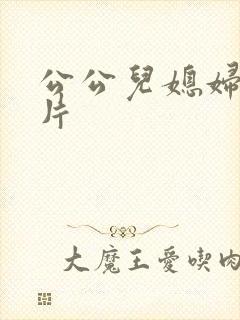 公公兒媳婦
片
大魔王愛喫肉